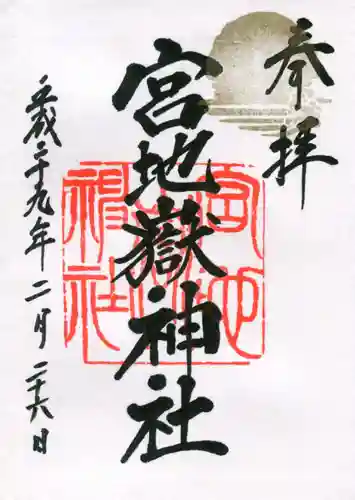 奉拝
宮地嶽神社
平成二十九年二月二十六日
宮地嶽
神社